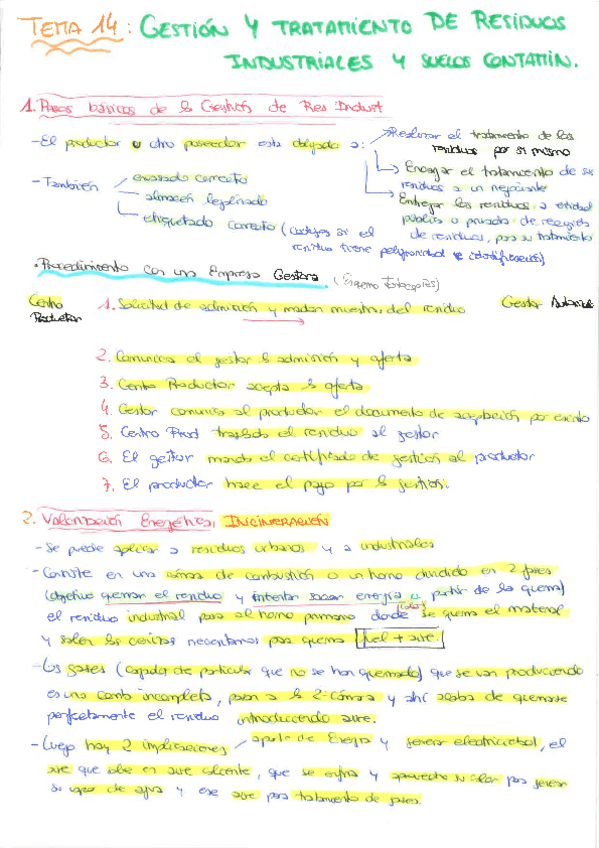 TEMA 14: GESTIÓN Y TRATAMIENTO DE RESIDUOS
INDUSTRIALES Y SUELOS CONTAMIN.
1. Pasos básicos de la Gestión de Res Indust
- El productor u otro poseedor está obligado a:
Realizar el tratamiento de los
residuos por si mismo
Encargar el tratamiento de sus
residuos a un negociante
Entregar los residuos a entidad
pública o privada de recogida
de residuos, para su tratamiento
- También
envasado correcto
almacén legalizado
etiquetado correcto (códigos si el
residuo tiene peligrosidad e identificación)
· Procedimiento con una Empresa Gestora (Esquema fotocopias)
Centro
Productor
1. Solicitud de admisión y mandan muestras del residuo
Gestor
2. Comunica el gestor la admisión y oferta
3. Centro Productor acepta la oferta
4. Gestor comunica al productor el documento de aceptación por escrito
5. Centro Prod traslada el residuo al gestor
6. El gestor manda el certificado de gestión al productor
7. El productor hace el pago por la gestión.
2. Valorización Energética, INCINERACIÓN
- Se puede aplicar a residuos urbanos y a industriales
- Consiste en una cámara de combustión o un horno dividido en 2 fases
(objetivo quemar el residuo y intentar sacar energía a partir de la quema)
el residuo industrial pasa al horno primario donde se quema el material
y salen las cenizas necesitamos para quemar fuel + aire.
- Los gases (cargados de partículas que no se han quemado) que se van produciendo
es una comb incompleta, pasan a la 2ª cámara y ahí acaba de quemarse
perfectamente el residuo introduciendo aire.
- Luego hay 2 implicaciones aporte de Energía y generar electricidad, el
aire que sale es aire caliente, que se enfría y aprovecha su calor para generar
su vapor de agua y ese aire pasa tratamiento de gases.